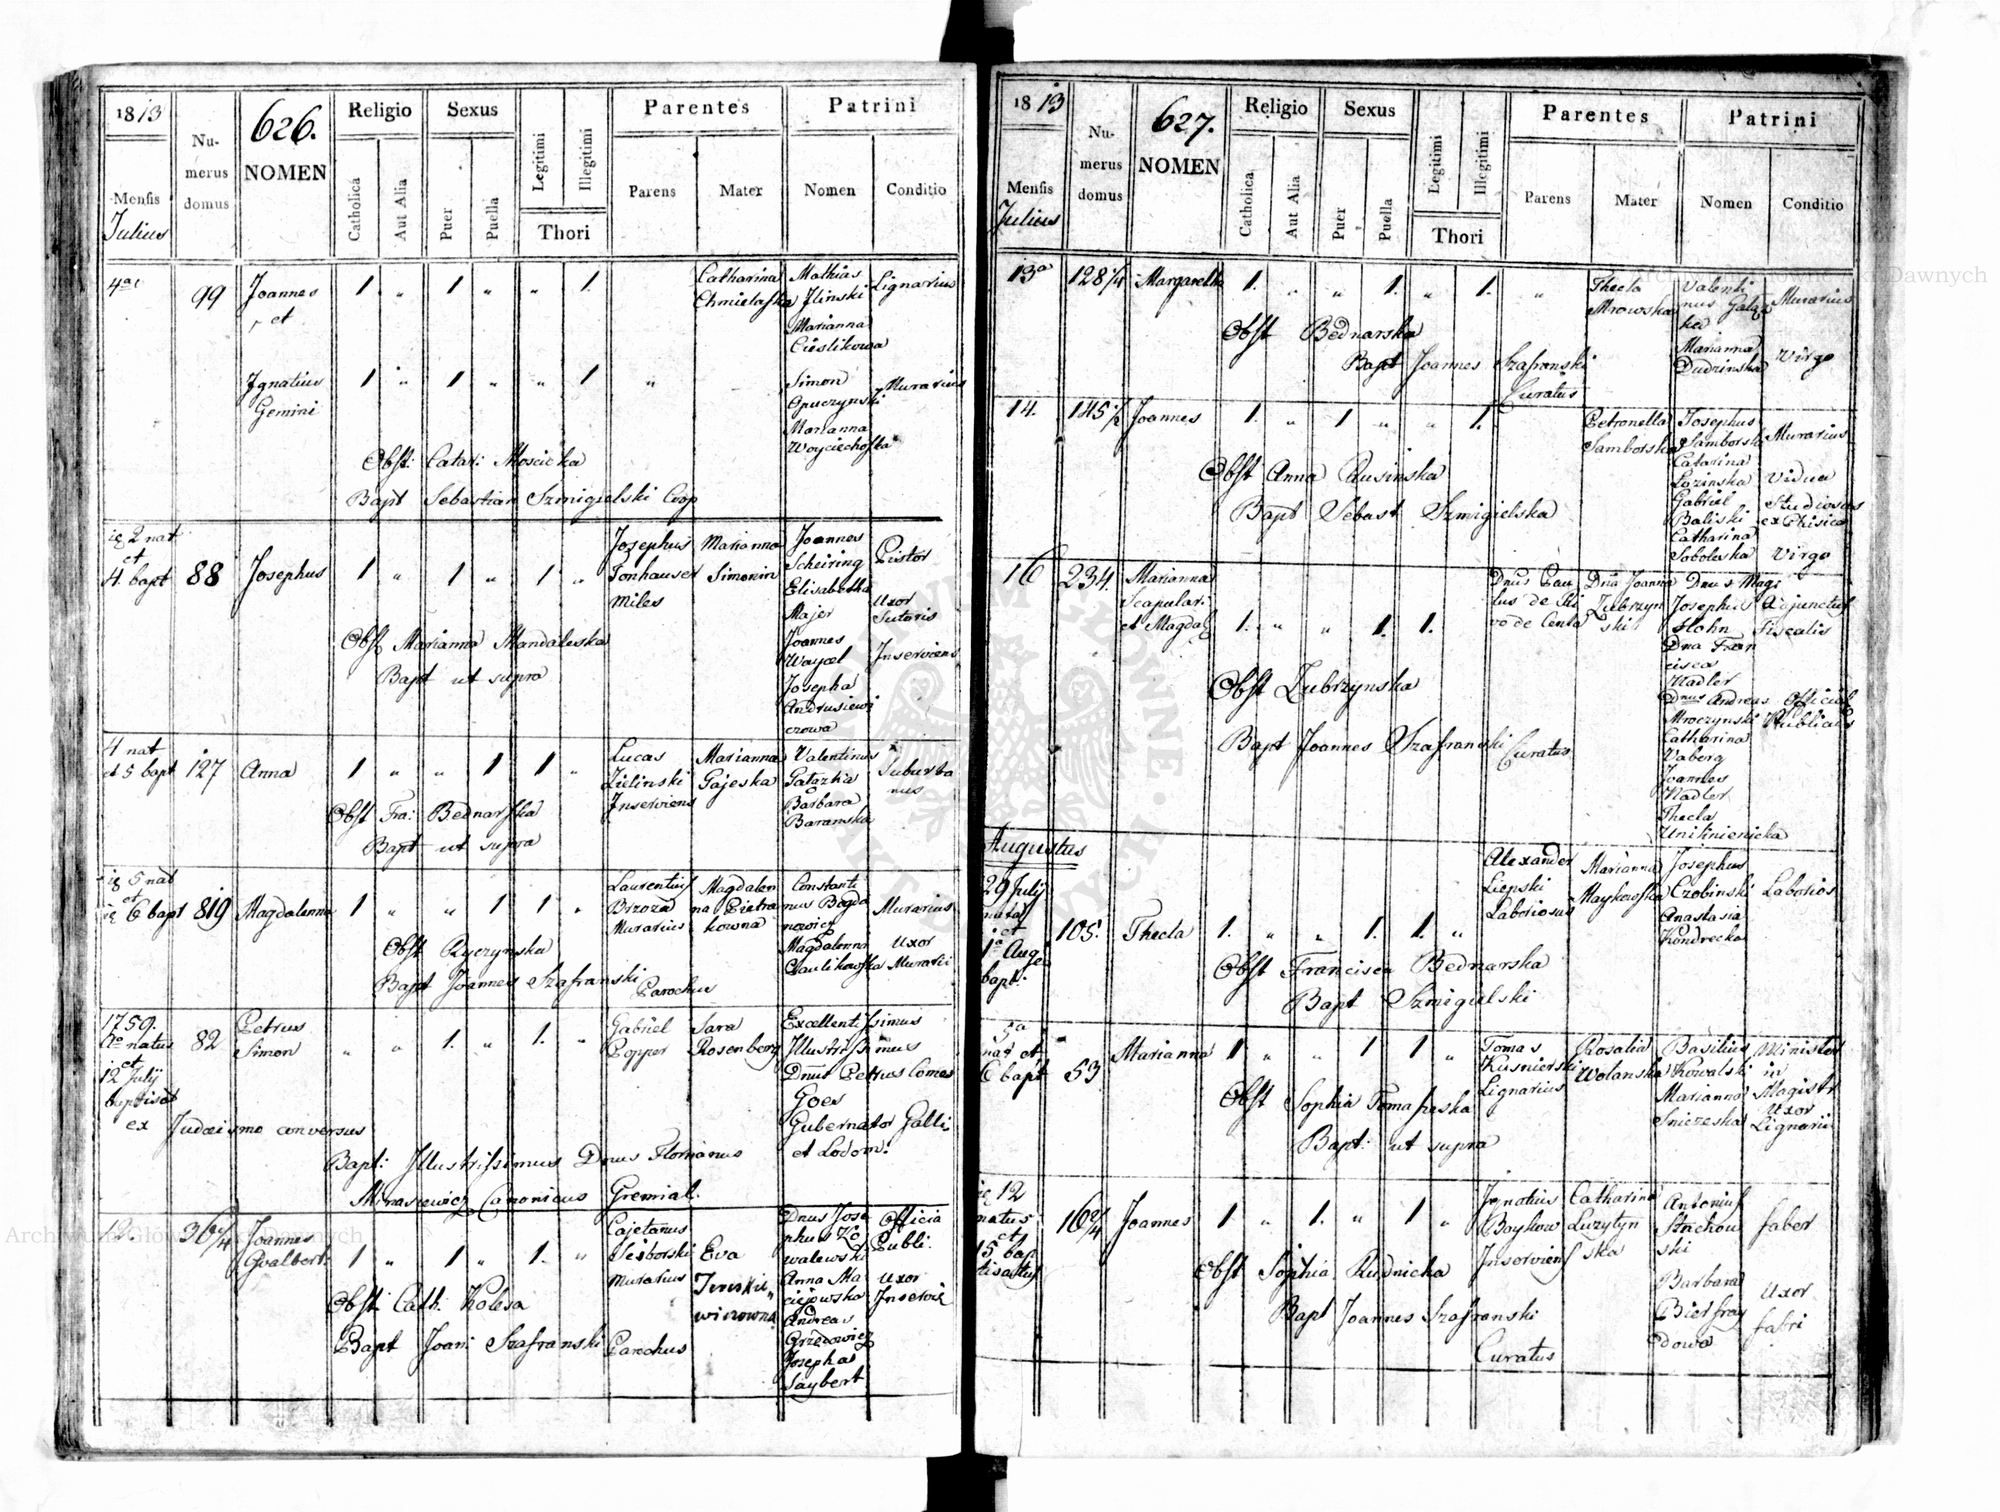 1813
Numerus domus
626.
NOMEN
Religio
Sexus
Legitimi
Illegitimi
Parentes
Patrini
Mensis
Julius
Catholica
Aut Alia
Puer
Puella
Thori
Parens
Mater
Nomen
Conditio
4a
99
Joannes
et
1 " 1 " " 1.
Catharina
Chmielaſka
Mathias
Jlinski
Lignarius
Marianna
Cieslikowa
Jgnatius
Gemini
1 " 1 " " 1 "
Simon
Opuczynski
Murarius
Marianna
Woyciechoſka
Obst: Catar: Moscicka
Bapt Sebastian Szmigielski Coop
2 nat
et
4. bapt
88
Josephus
1 " 1 " 1 "
Josephus
Tonhauser
Miles
Marianna
Simonin
Joannes
Scheiring
Pistor
Elisabetha
Major
Uxor
Sutoris
Joannes
Wayzel
Inserviens
Josepha
Andrusiewi
czowa
Obst Marianna Mandaleska
Bapt ut supra
4 nat
et 5 bapt
127
Anna
1 " " 1 1 "
Lucas
Zielinski
Inserviens
Marianna
Gajeska
Valentinus
Gatazka
Suburba
nus
Barbara
Baranska
Obst Fra: Bednarſka
Bapt ut supra
5 nat
et
6 bapt
819
Magdalenna
1 " " 1 1 "
Laurentius
Brzoza
Murarius
Magdalen
na Pietra
kowna
Constanti
nus Bogda
nowicz
Murarius
Magdalenna
Paulikowſka
Uxor
Murarii
Obst Ryczynska
Bapt Joannes Szafranski
Parochus
1759.
natus
et
12 Julij
baptisat
ex Judaismo conversus
82
Petrus
Simon
" " 1. " 1. "
Gabriel
Popper
Sara
Rosenberg
Excellentiſsimus
Jllustriſsimus
Dnus Petrus Comes
Goes
Gubernator Galli.
et Lodom:
Bapt: Jllustriſsimus Dnus Florianus
Minasiewicz Canonicus Gremial.
12
36 2/4
Joannes
Gvalbert:
1 " 1 " 1. "
Cajetanus
Murarius
Eva
Dnus Jose
phus Ko
walewski
Officia
Publi:
Anna Ma
ciejowska
Uxor
Andreas
Grzedowicz
Josepha
Saybert
Obst: Cath: Kolesa
Bapt Joan: Szafranski Parochus
1813
Numerus domus
627.
NOMEN
Religio
Sexus
Legitimi
Illegitimi
Parentes
Patrini
Mensis
Julius
Catholica
Aut Alia
Puer
Puella
Thori
Parens
Mater
Nomen
Conditio
13a
128 1/4
Margaretha
1. " " 1. " 1. "
Thecla
Mrowska
Valenti
nus Galaz
ka
Murarius
Marianna
Dudzinska
Virgo
Obst Bednarska
Bapt Joannes Szafranski
Curatus
14.
145 1/2
Joannes
1. " 1 " " 1.
Petronella
Samborska
Josephus
Samborski
Murarius
Catarina
Lozinska
Vidua
Gabriel
Baliski
Studiosus
ex Phisica
Catharina
Soboleska
Virgo
Obst Anna Rusinska
Bapt Sebast Szmigielska
16
234.
Marianna
Scapulari
et Magdal
1. " " 1. 1.
Dnus Pau
lus de Ri
vo de Centa
Dna Joanna
Zubrzyn
ski
Dnus Mag:
Josephus
Hohn
Adjunctus
Fiscalis
Dna Fran
cisca
Nadler
Dnus Andreas
Mroczynski
Official
Publicus
Catharina
Vaberg
Joannes
Nadler
Thecla
Unisnienicka
Obst Zubrzynska
Bapt Joannes Szafranski Curatus
Augustus
29 July
natal
et
1a Aug
bapt:
105.
Thecla
1. " " 1. 1. "
Alexander
Liepski
Laboriosus
Marianna
Maykowſka
Josephus
Czobinski
Laborios
Anastasia
Kondrecka
Obst Francisca Bednarska
Bapt Szmigielski
5a
nat et
6 bapt
53
Marianna
1 " " 1 1 "
Tomas
Kusnierski
Lignarius
Rosalia
Wolanska
Basilius
Kowalski
Minister
in
Magistr
Marianna
Sniezeska
Uxor
Lignarii
Obst Sophia Tomaſzeska
Bapt: ut supra
12
natus
et
15 bap
tisatus
162/4
Joannes
1 " 1. " 1 "
Jgnatius
Boykow
Inserviens
Catharina
Luzytyn
ska
Antonius
Strichow
ski
faber
Barbara
Bierfray
dowa
Uxor
fabri
Obst Sophia Rudnicka
Bapt Joannes Szafranski
Curatus